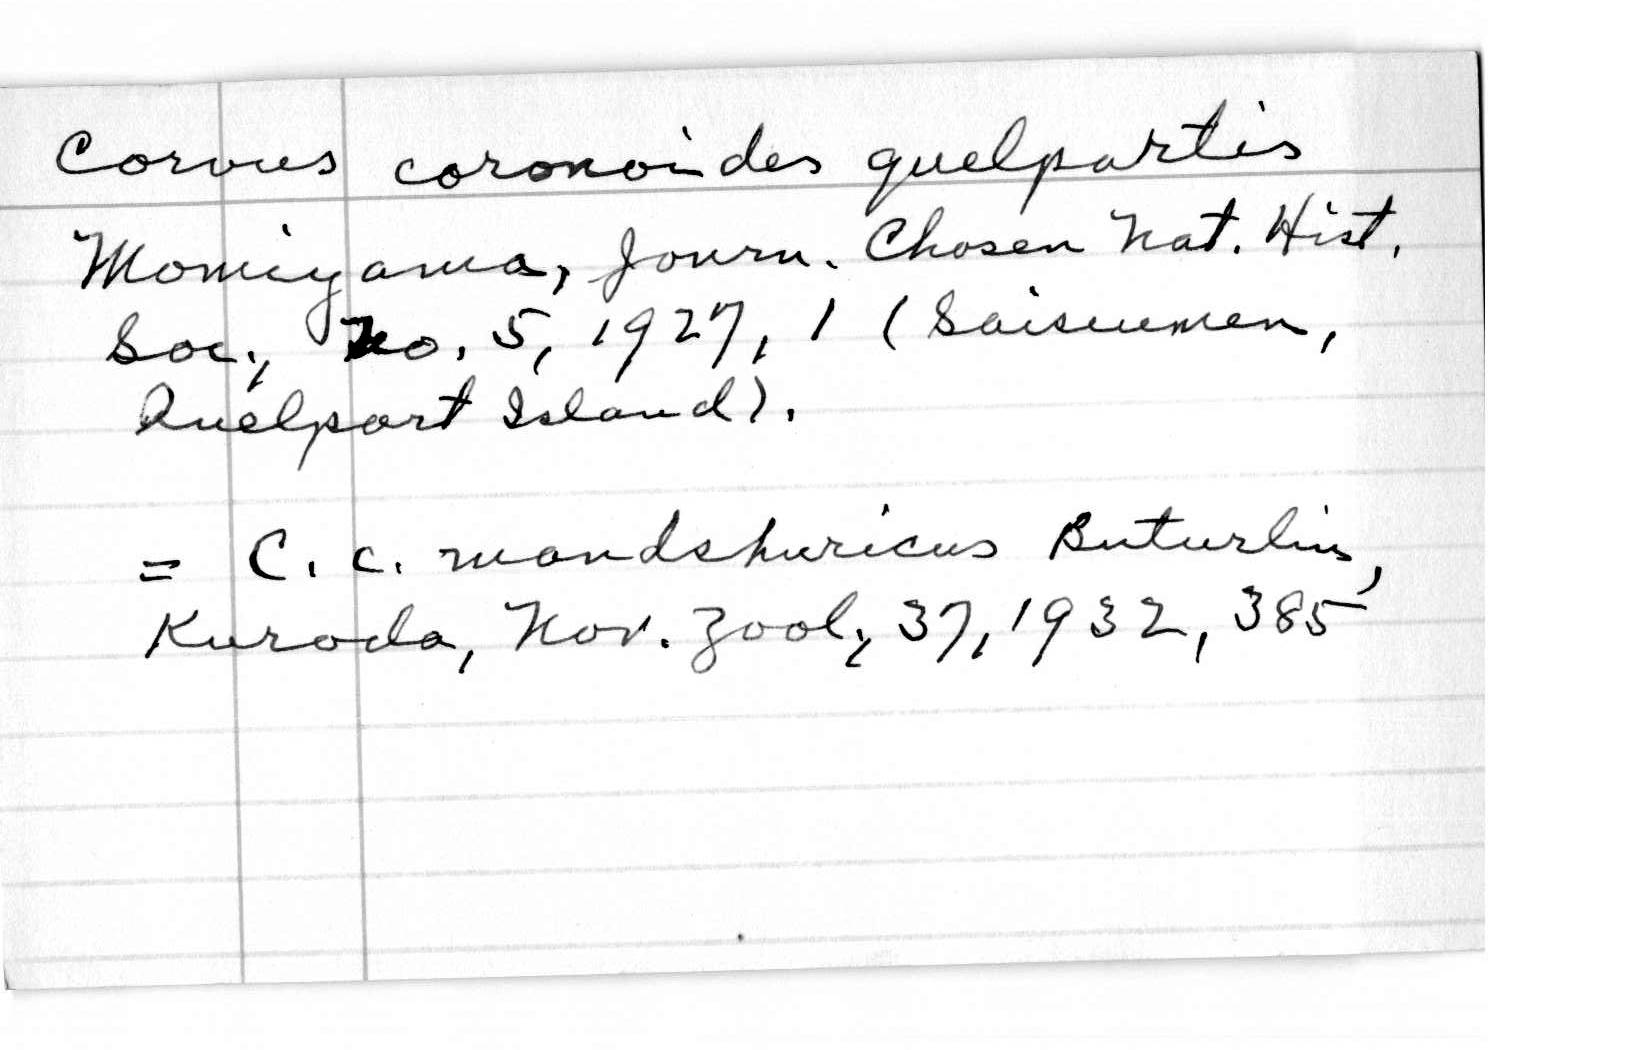 Corvus coronoides quelpartis
Momiyama, Journ. Chosen Nat. Hist.
Soc., No. 5, 1927, 1 (Saisiumen,
Quelpart Island).
= C. c. mandshuricus Buturlin,
Kuroda, Nov. Zool., 37, 1932, 385